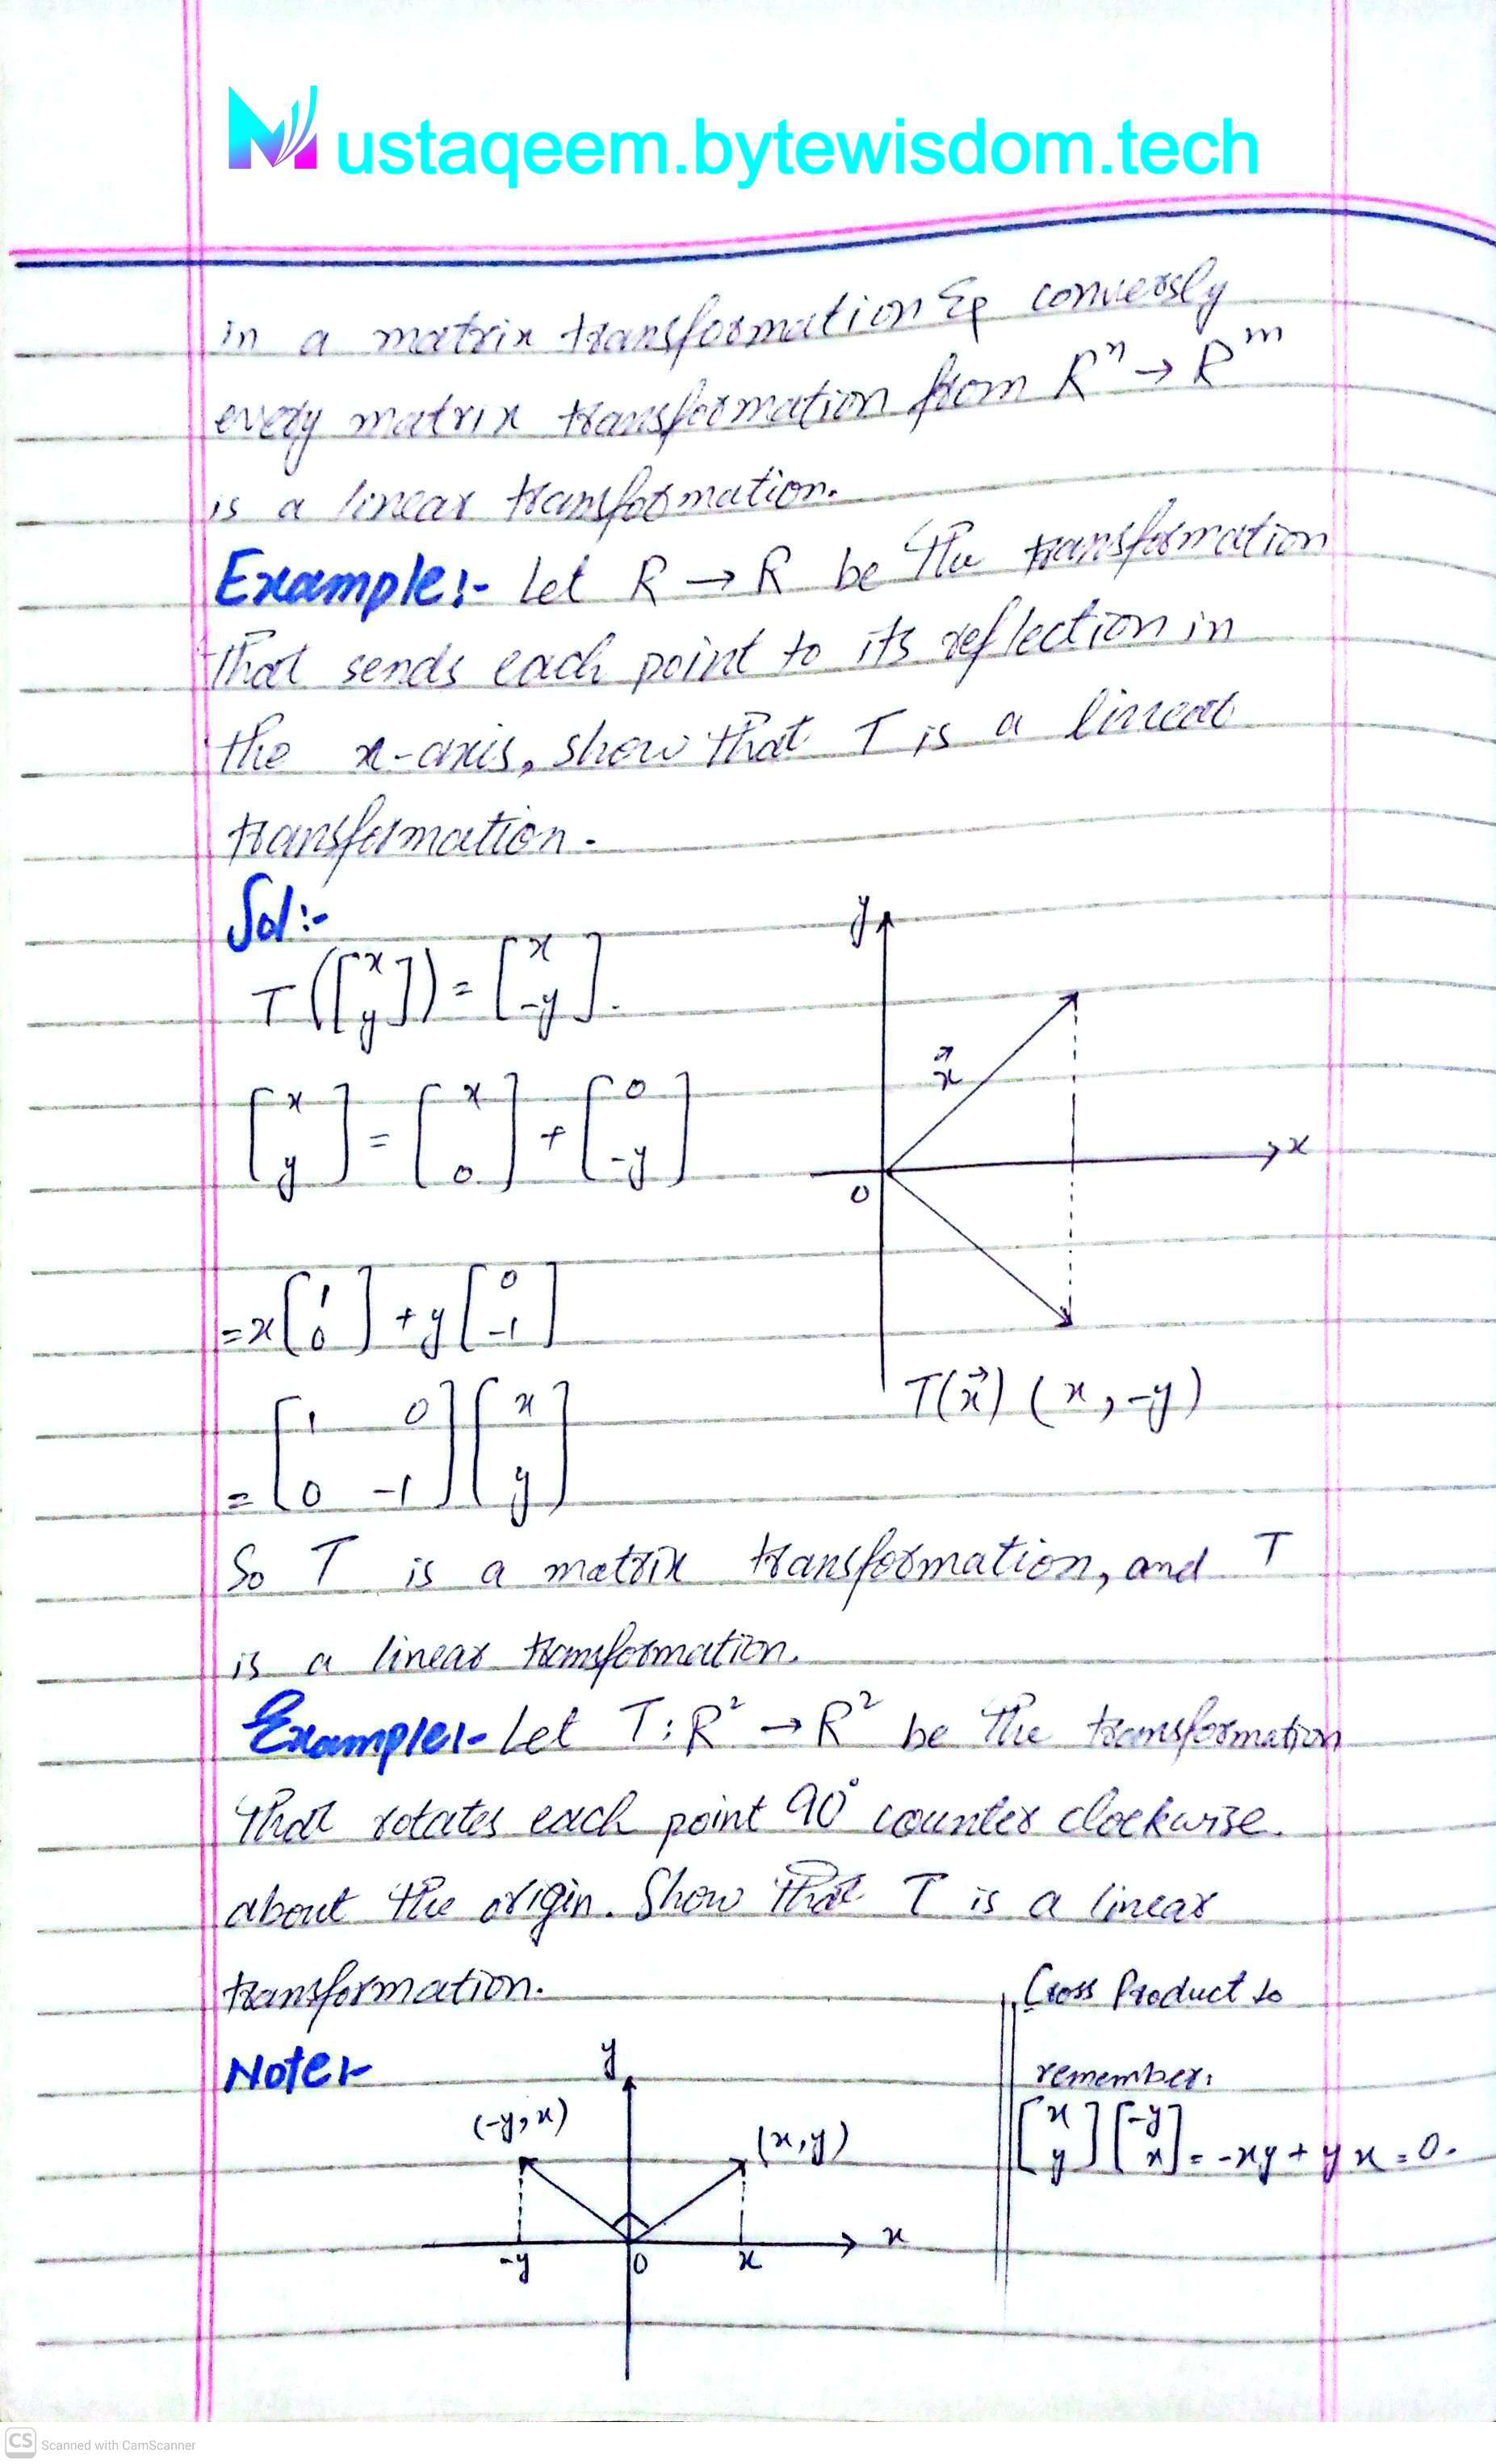 Mustaqeem.bytewisdom.tech
in a matrix transformation & conversly
every matrix transformation from Rⁿ → Rᵐ
is a linear transformation.
Example:- Let R → R be the transformation
that sends each point to its reflection in
the x-axis, show that T is a linear
transformation.
Sol:-
T([x y]) = [x -y].
[x y] = [x 0] + [0 -y]
= x[1 0] + y[0 -1]
= [1 0 0 -1][x y]
y
x⃗
x
0
T(x⃗) (x, -y)
So T is a matrix transformation, and T
is a linear transformation.
Example:- Let T: R² → R² be the transformation
that rotates each point 90° counter clockwise.
about the origin. Show that T is a linear
transformation.
Note:-
y
(-y, x)
(x, y)
x
-y
0
x
Cross Product to
remember:
[x y][-y x] = -xy + yx = 0.
CS Scanned with CamScanner